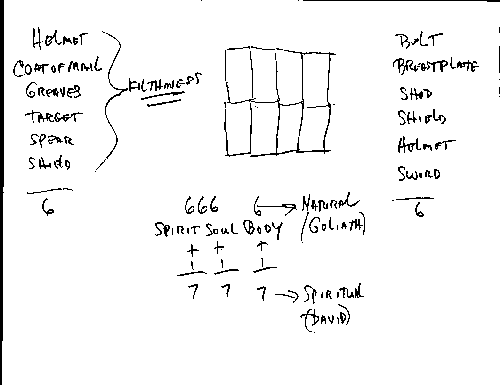 HELMET
COAT OF MAIL
GREAVES
TARGET
SPEAR
SHIELD
6
FILTHINESS
BELT
BREASTPLATE
SHOD
SHIELD
HELMET
SWORD
6
666 6 → NATURAL
SPIRIT SOUL BODY (GOLIATH)
+ + +
1 1 1
7 7 7 → SPIRITUAL
(DAVID)